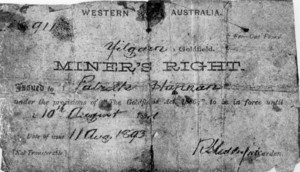 WESTERN AUSTRALIA.
No. 911
Yilgarn Goldfield.
MINER'S RIGHT.
Issued to Patrick Hannan
under the provisions of "The Goldfields Act, to be in force until
10th August
Date of issue 11 Aug 1893
(Not Transferable) Warden